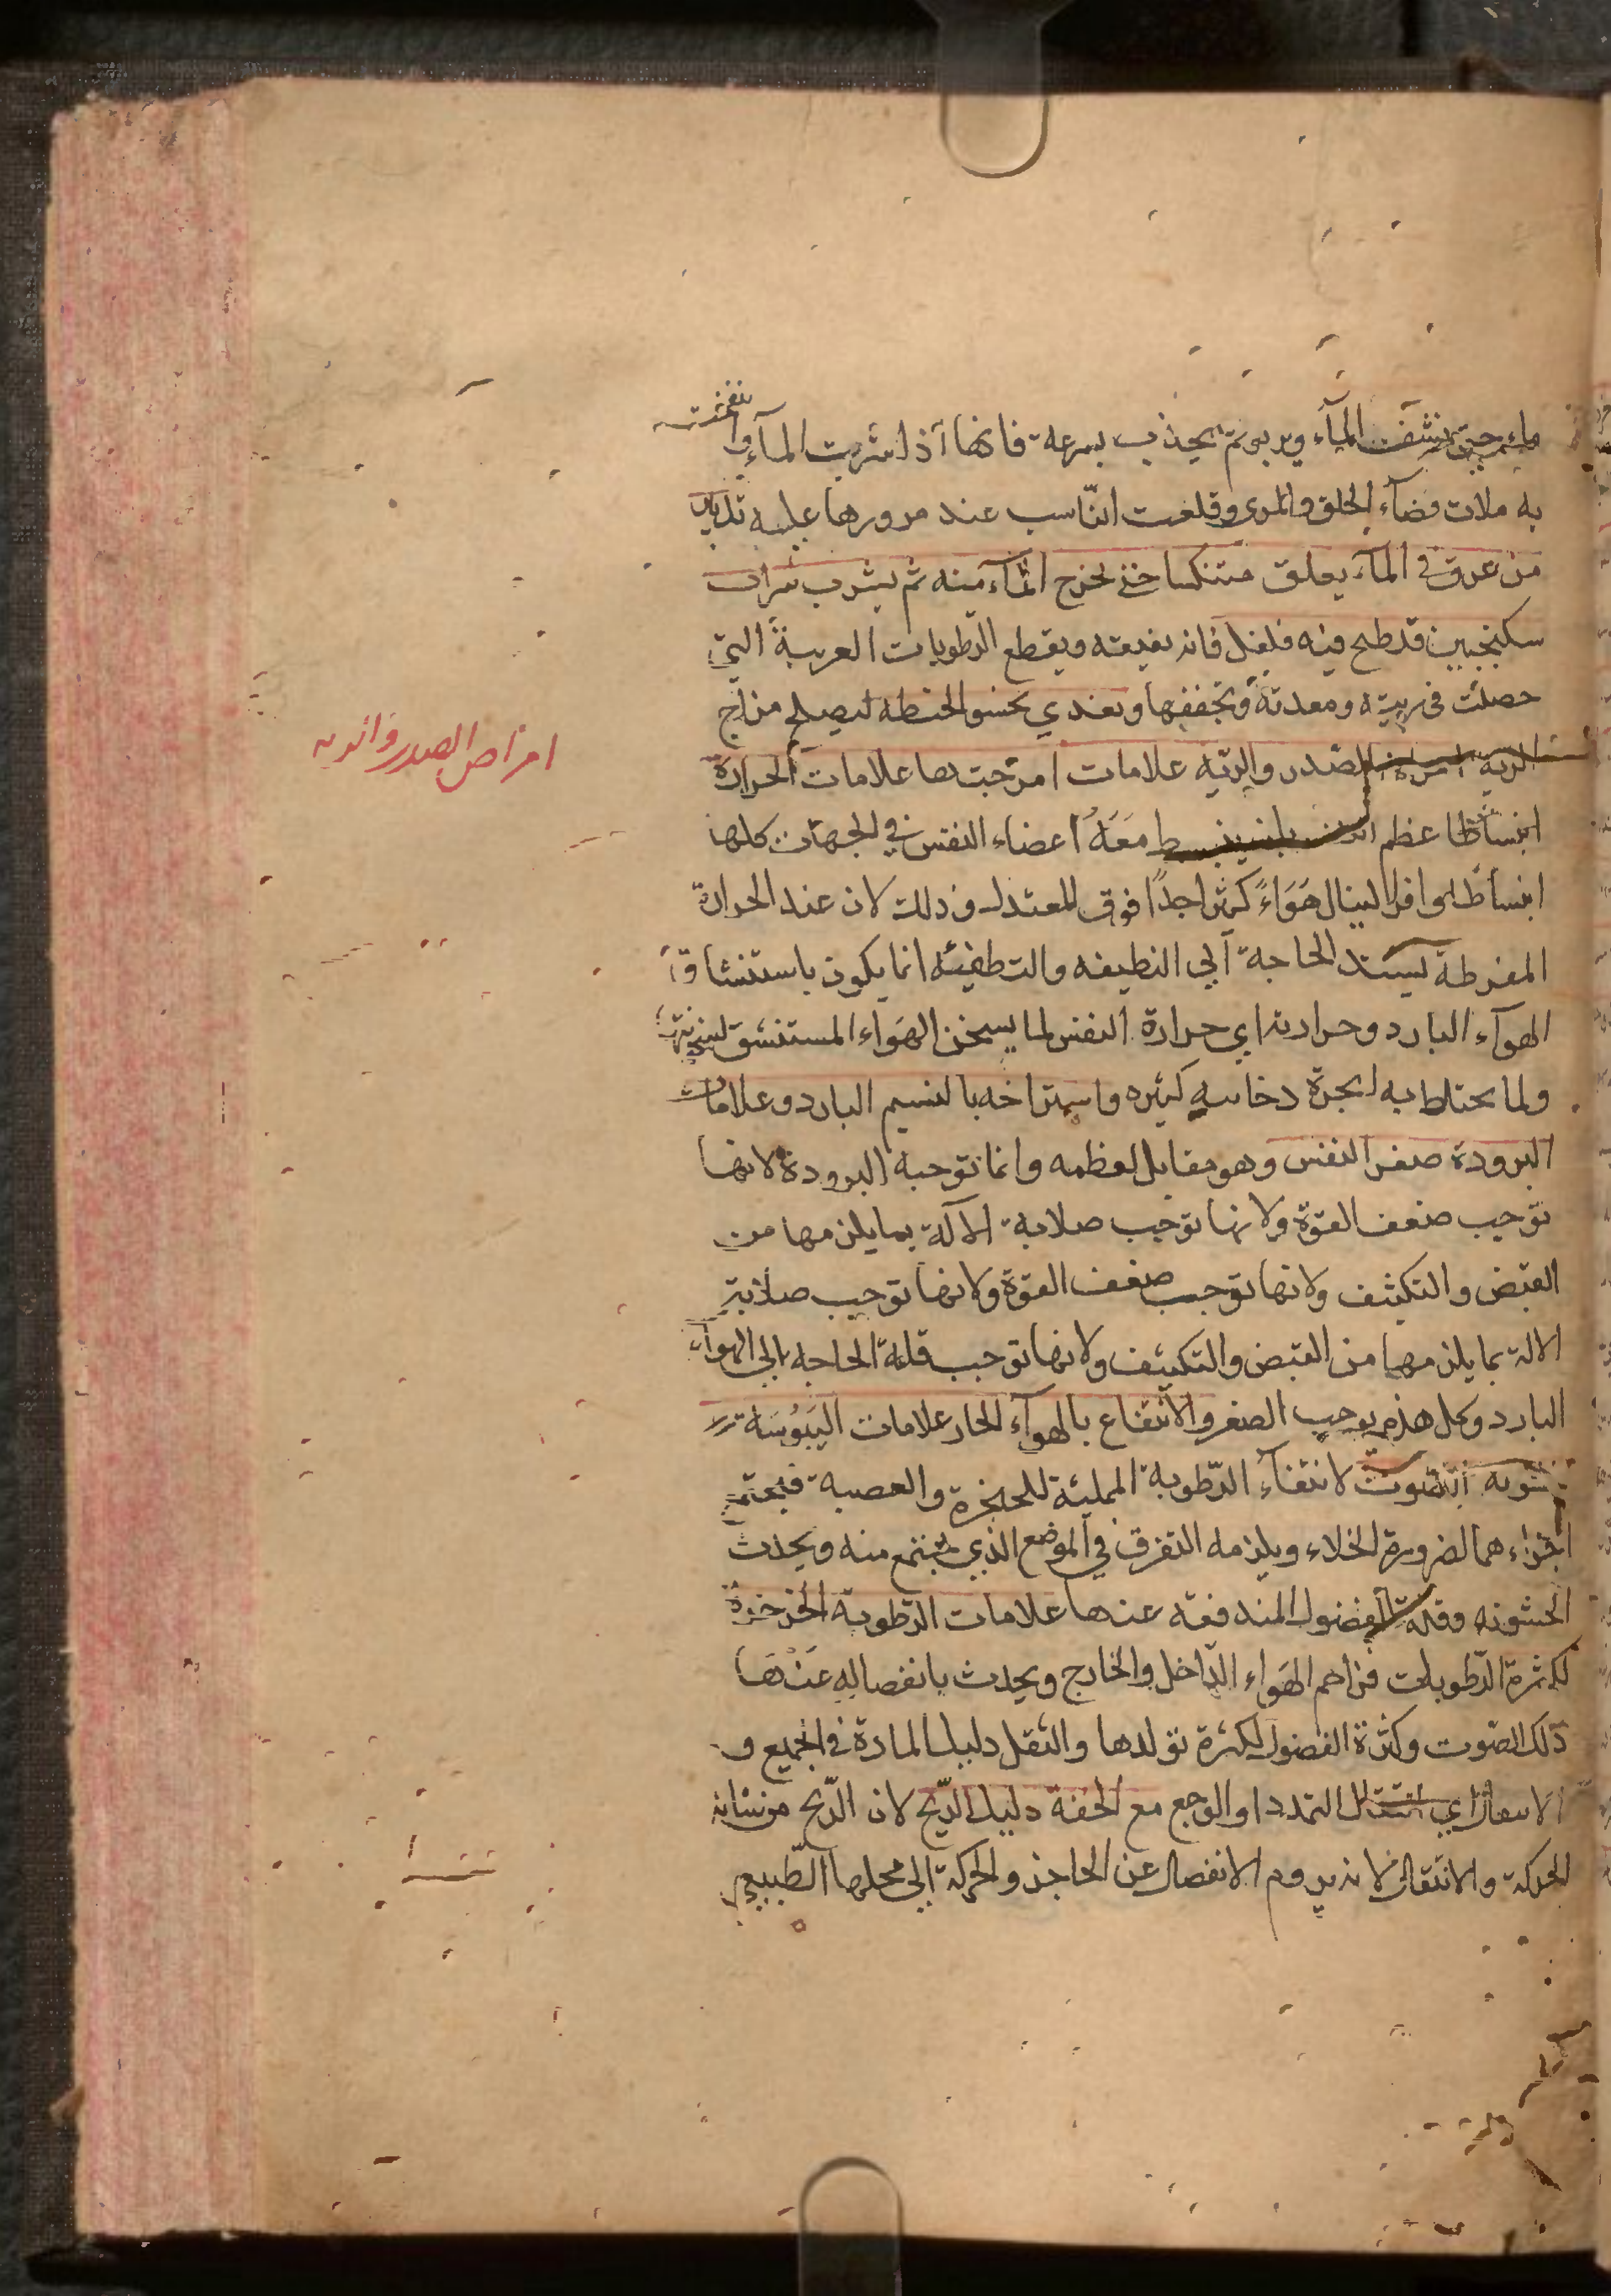 ماء حتى تنشف المآء ويربو ثم يجذب بسرعة فانها اذا شربت المآء وانتفخت
به ملات فضآء الحلق والمرى وقلعت الناشب عند مرورها عليه تدبير
من غرق فى المآء يعلق متنكسا حتى يخرج المآء منه ثم يشرب شراب
سكنجبين قد طبخ فيه فلفل فانه يفيقه ويقطع الرطوبات الغريبة التي
حصلت فى ريته ومعدته ويجففها ويغذي بحسو الحنطه ليصلح مزاج
الرية امراض الصدر والرئه علامات امزجتها علامات الحرارة
عظم النفس بان ينبسط معه اعضاء النفس في الجهات كلها
انبساطا وافرا لينال هَوَاءً كثيرا جدًا فوق المعتدل وذلك لان عند الحرارة
المفرطة يشتد الحاجة الي التطفيه والتطفئه انما يكون باستنشاق
الهوآء البارد وحرارته اي حرارة النفس لما يسخن الهَوَاء المستنشق
ولما يختلط به ابخرة دخانيه كثيره واستراحه بالنسيم البارد وعلامات
البرودة صغر النفس وهو مقابل لعظمه وانما توجبه البرودة لانها
توجب ضعف القوة ولانها توجب صلابة الآلة بما يلزمها من
القبض والتكثيف ولانها توجب ضعف القوة ولانها توجب صلابة
الالة بما يلزمها من القبض والتكثيف ولانها توجب قلة الحاجه الى الهوآء
البارد وكل هذه يوجب الصغر والانتفاع بالهوآء الحار علامات اليَبُوسَة
خشونه الصوت لانتفآء الرّطوبة المملئة للحنجرة والقصبة فيجتمع
اجزاءهما لضرورة الخلاء ويلزمه التفرق في الموضع الذي يجتمع منه ويحدث
الخشونه وقلة الفضول المندفعة عنها علامات الرّطوبة الخرخرة
لكثرة الرّطوبات فزاحم الهَوَاء الدّاخل والخارج ويحدث بانفصاله عَنْهَا
ذلك الصّوت وكثرة الفضول لكثرة تولدها والثقل دليل المادة فى الجميع و
الانتقال اي انتقال التمدد او الوجع مع الخفة دليل الرّيح لان الرّيح من شانه
الحركة والانتقال لانه يروم الانفصال عن الحاجز والحركة الى محلها الطّبيعي
امراض الصدر والريه